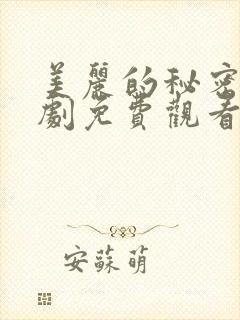 美麗的秘密
劇免費觀看
安蘇萌